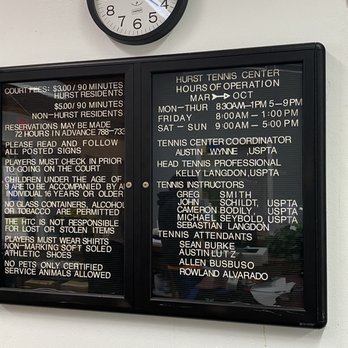 8 7 6 5 4
COURT FEES: $3.00/ 90 MINUTES
HURST RESIDENTS
$5.00/ 90 MINUTES
NON-HURST RESIDENTS
RESERVATIONS MAY BE MADE
72 HOURS IN ADVANCE 788-733
PLEASE READ AND FOLLOW
ALL POSTED SIGNS
PLAYERS MUST CHECK IN PRIOR
TO GOING ON THE COURT
CHILDREN UNDER THE AGE OF
9 ARE TO BE ACCOMPANIED BY A
INDIVIDUAL 16 YEARS OR OLDER
NO GLASS CONTAINERS, ALCOHOL
OR TOBACCO ARE PERMITTED
THE HTC IS NOT RESPONSIBLE
FOR LOST OR STOLEN ITEMS
PLAYERS MUST WEAR SHIRTS
NON-MARKING SOFT SOLED
ATHLETIC SHOES
NO PETS ONLY CERTIFIED
SERVICE ANIMALS ALLOWED
HURST TENNIS CENTER
HOURS OF OPERATION
MAR OCT
MON-THUR 8:30AM-1PM 5-9PM
FRIDAY 8:00AM - 1:00 PM
SAT - SUN 9:00AM - 5:00 PM
TENNIS CENTER COORDINATOR
AUSTIN WYNNE ,USPTA
HEAD TENNIS PROFESSIONAL
KELLY LANGDON,USPTA
TENNIS INSTRUCTORS
GREG SMITH
JOHN SCHILDT, USPTA
CAMERON BODILY, USPTA
MICHAEL SEYBOLD, USPTA
SEBASTIAN LANGDON
TENNIS ATTENDANTS
SEAN BURKE
AUSTIN LUTZ
ALLEN BUSBUSO
ROWLAND ALVARADO